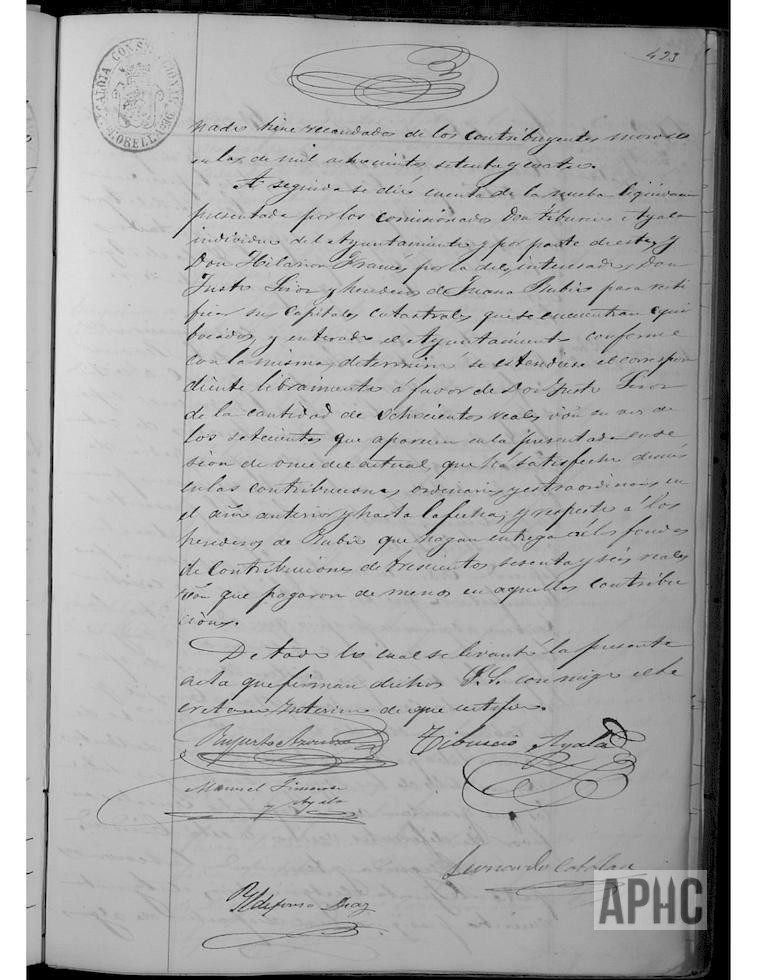 423
ALCALDIA CONSTITUCIONAL
CORELLA
nado tiene recaudados de los contribuyentes morosos
en las de mil ochocientos setenta y cuatro.
A seguida se dió cuenta de la nueba liquidacion
presentada por los comisionados Don Tiburcio Ayala
individuo del Ayuntamiento y por parte de este, y
Don Hilarion Francés por la de los interesados Don
Justo y herederos de Juana Rubio para recti
ficar sus capitales catastrales que se encuentran equi
bocados, y enterado el Ayuntamiento conforme
con la misma, determinó se estendiese el correspon
diente libramiento á favor de Don Justo
de la cantidad de Ochocientos reales von en vez de
los setecientos que aparecen en la presentada en se
sion de once del actual, que ha satisfecho demás
en las contribuciones ordinarias y estraordinarias en
el año anterior y hasta la fecha; y respecto á los
herederos de Rubio que hagan entrega á los fondos
de contribuciones de trescientos sesenta y seis reales
von que pagaron de menos en aquellas contribu
ciones.
De todo lo cual se levantó la presente
acta que firman dichos S.S. conmigo el Se
cretario Interino de que certifico.
Ruperto Tiburcio Ayala
Manuel Jimenez
y Ayala
Leonardo Catalan
Yldefonso Diaz
APHC